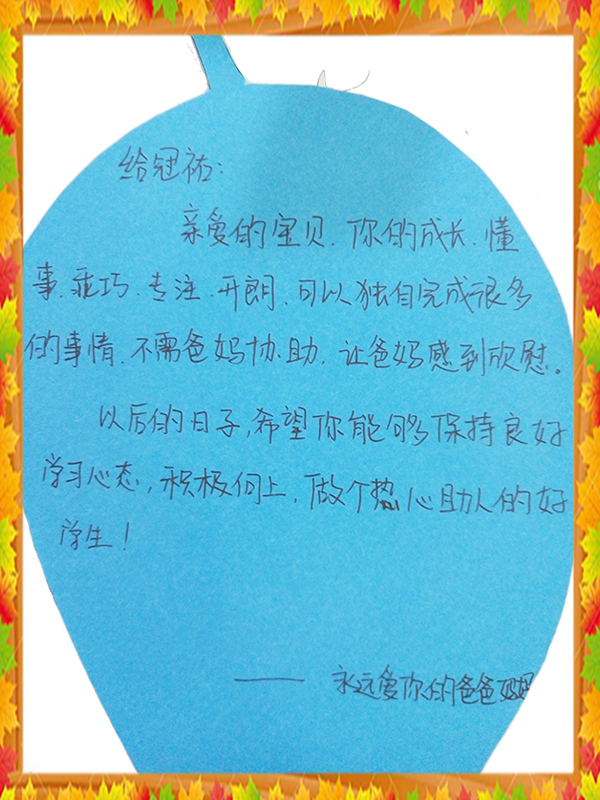 给冠祐:
亲爱的宝贝.你的成长.懂
事.乖巧.专注.开朗.可以独自完成很多
的事情.不需爸妈协助.让爸妈感到欣慰。
以后的日子,希望你能够保持良好
学习心态,积极向上,做个热心助人的好
学生!
—— 永远爱你的爸爸妈妈